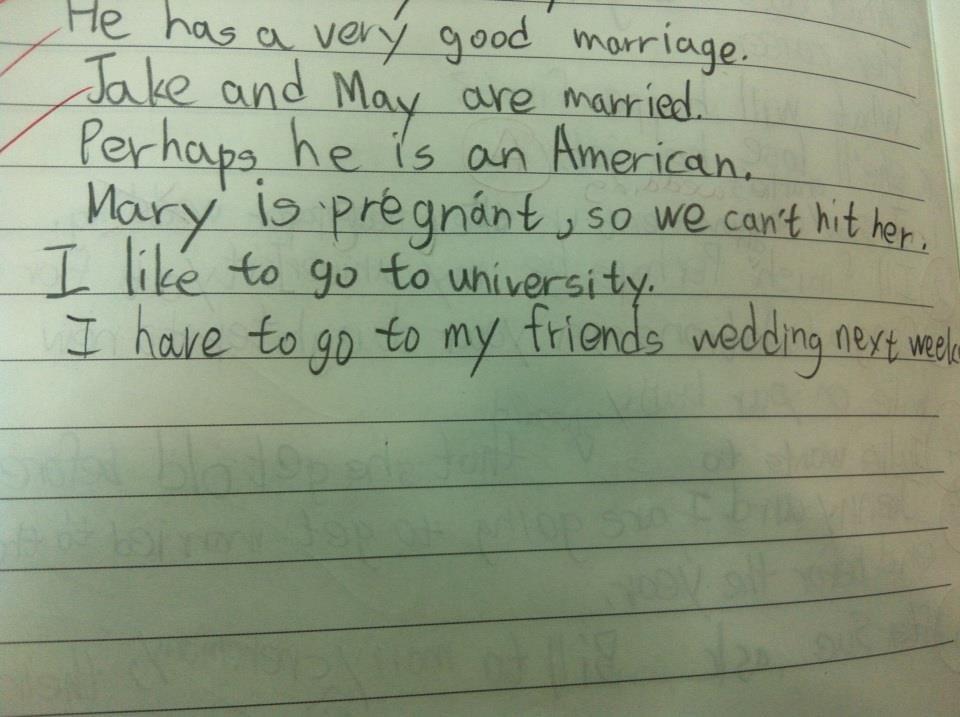 He has a very good marriage.
Jake and May are married.
Perhaps he is an American.
Mary is pregnant, so we can't hit her.
I like to go to university.
I have to go to my friends wedding next week